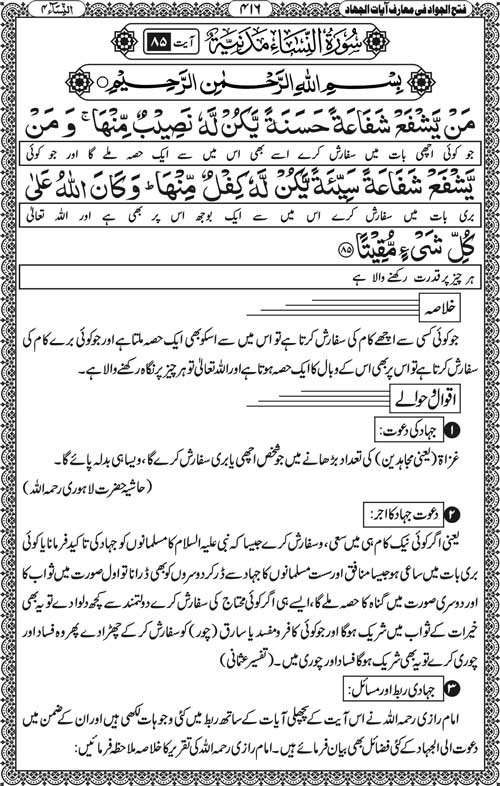 فتح الجواد فی معارف آیات الجهاد
۴۱۶
النِّسَآء ۴
سُوْرَةُ النِّسَاءِ مَدَنِيَّةٌ
آیت ۸۵
بِسْمِ اللهِ الرَّحْمٰنِ الرَّحِيْمِ
مَنْ يَّشْفَعْ شَفَاعَةً حَسَنَةً يَّكُنْ لَّهٗ نَصِيْبٌ مِّنْهَا ۚ وَ مَنْ
جو کوئی اچھی بات میں سفارش کرے اسے بھی اس میں سے ایک حصہ ملے گا اور جو کوئی
يَّشْفَعْ شَفَاعَةً سَيِّئَةً يَّكُنْ لَّهٗ كِفْلٌ مِّنْهَا ؕ وَ كَانَ اللهُ عَلٰى
بری بات میں سفارش کرے اس میں سے ایک بوجھ اس پر بھی ہے اور اللہ تعالیٰ
كُلِّ شَىْءٍ مُّقِيْتًا ﴿۸۵﴾
ہر چیز پر قدرت رکھنے والا ہے
خلاصہ
جو کوئی کسی سے اچھے کام کی سفارش کرتا ہے تو اس میں سے اسکو بھی ایک حصہ ملتا ہے اور جو کوئی برے کام کی
سفارش کرتا ہے تو اس پر بھی اس کے وبال کا ایک حصہ ہوتا ہے اور اللہ تعالیٰ تو ہر چیز پر نگاہ رکھنے والا ہے۔
اقوال و حوالے
۱ جہاد کی دعوت:
غزاۃ (یعنی مجاہدین) کی تعداد بڑھانے میں جو شخص اچھی یا بری سفارش کرے گا، ویسا ہی بدلہ پائے گا۔
(حاشیہ حضرت لاہوری رحمہ اللہ)
۲ دعوت جہاد کا اجر:
یعنی اگر کوئی نیک کام ہی میں سعی، و سفارش کرے جیسا کہ نبی علیہ السلام کا مسلمانوں کو جہاد کی تاکید فرمانا یا کوئی
بری بات میں ساعی ہو جیسا منافق اور سست مسلمانوں کا جہاد سے ڈر کر دوسروں کو بھی ڈرانا تو اول صورت میں ثواب کا
اور دوسری صورت میں گناہ کا حصہ ملے گا، ایسے ہی اگر کوئی محتاج کی سفارش کرے دولتمند سے کچھ دلوا دے تو یہ بھی
خیرات کے ثواب میں شریک ہوگا اور جو کوئی کافر و مفسد یا سارق (چور) کو سفارش کر کے چھڑا دے پھر وہ فساد اور
چوری کرے تو یہ بھی شریک ہوگا فساد اور چوری میں۔ (تفسیر عثمانی)
۳ جہادی ربط اور مسائل:
امام رازی رحمہ اللہ نے اس آیت کے پچھلی آیات کے ساتھ ربط میں کئی وجوہات لکھی ہیں اور ان کے ضمن میں
دعوت الی الجہاد کے کئی فضائل بھی بیان فرمائے ہیں۔ امام رازی رحمہ اللہ کی تقریر کا خلاصہ ملاحظہ فرمائیں: